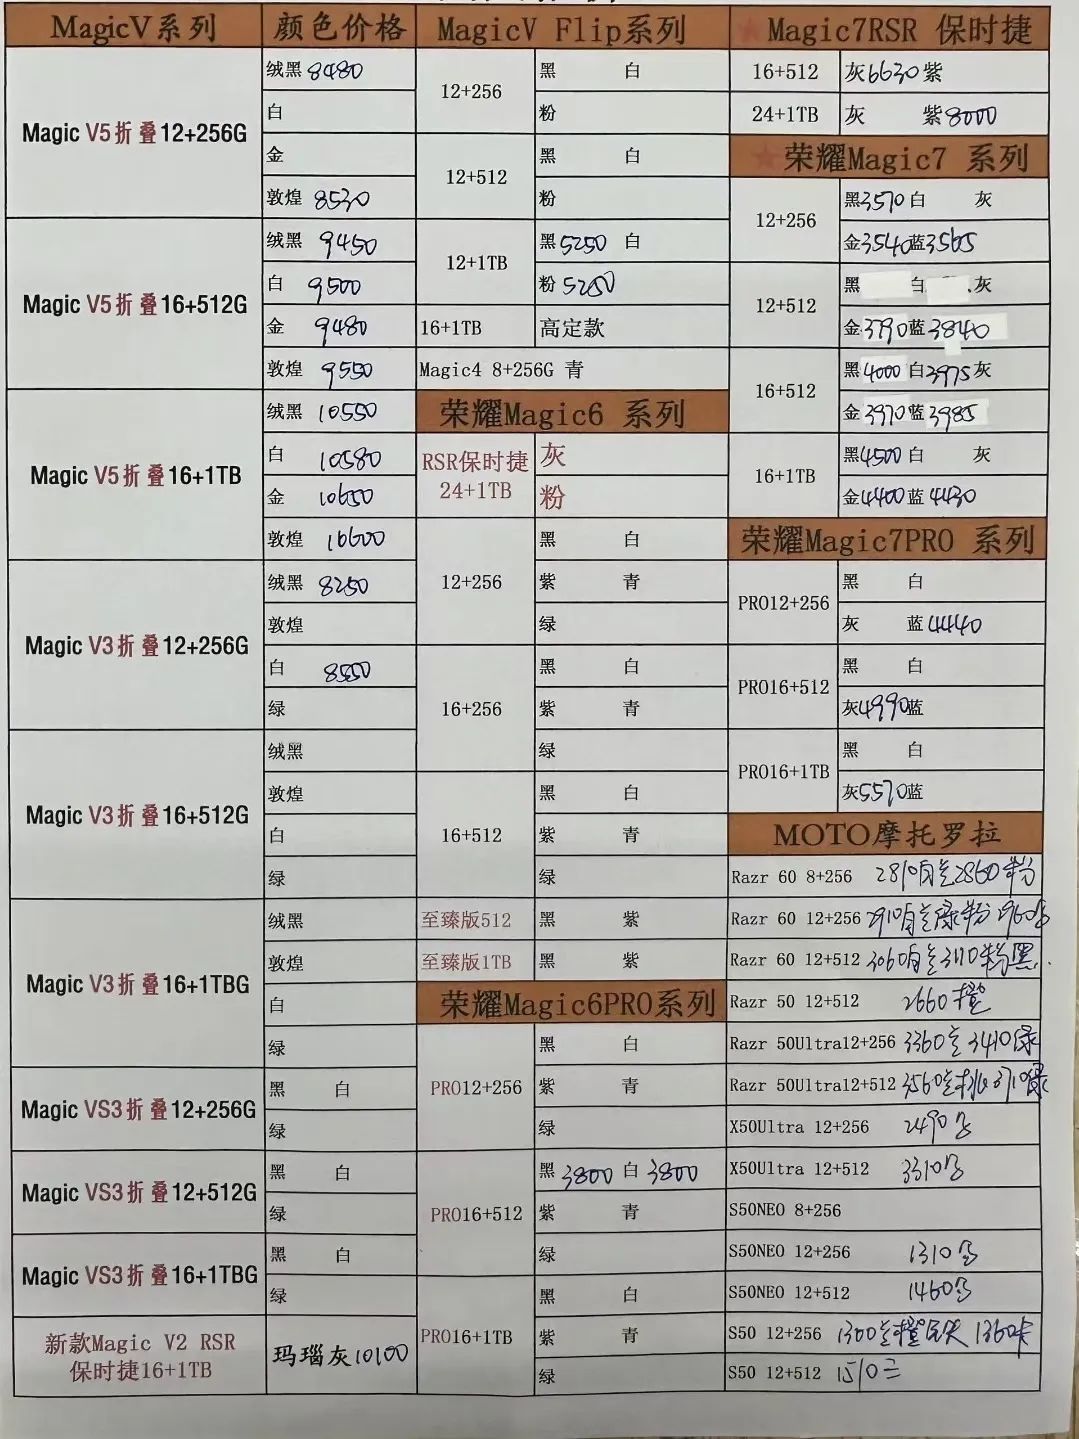 MagicV系列 颜色价格
Magic V5折叠12+256G
绒黑 8480
白
金
敦煌 8530
Magic V5折叠16+512G
绒黑 9450
白 9500
金 9480
敦煌 9550
Magic V5折叠16+1TB
绒黑 10550
白 10580
金 10650
敦煌 10600
Magic V3折叠12+256G
绒黑 8250
敦煌
白 8550
绿
Magic V3折叠16+512G
绒黑
敦煌
白
绿
Magic V3折叠16+1TBG
绒黑
敦煌
白
绿
Magic VS3折叠12+256G
黑 白
绿
Magic VS3折叠12+512G
黑 白
绿
Magic VS3折叠16+1TBG
黑 白
绿
新款Magic V2 RSR
保时捷16+1TB
玛瑙灰10100
MagicV Flip系列
12+256
黑 白
粉
12+512
黑 白
粉
12+1TB
黑5250 白
粉5250
16+1TB 高定款
Magic4 8+256G 青
荣耀Magic6 系列
RSR保时捷
24+1TB
灰
粉
12+256
黑 白
紫 青
绿
16+256
黑 白
紫 青
绿
16+512
黑 白
紫 青
绿
至臻版512 黑 紫
至臻版1TB 黑 紫
荣耀Magic6PRO系列
PRO12+256
黑 白
紫 青
绿
PRO16+512
黑3800 白3800
紫 青
绿
PRO16+1TB
黑 白
紫 青
绿
★Magic7RSR 保时捷
16+512 灰6630紫
24+1TB 灰 紫8000
★荣耀Magic7 系列
12+256
黑3570白 灰
金3540蓝3565
12+512
黑 白 灰
金3790蓝3840
16+512
黑4000白3975灰
金3970蓝3985
16+1TB
黑4500白 灰
金4400蓝4430
荣耀Magic7PRO 系列
PRO12+256
黑 白
灰 蓝4440
PRO16+512
黑 白
灰4990蓝
PRO16+1TB
黑 白
灰5570蓝
MOTO摩托罗拉
Razr 60 8+256 2810 2860粉
Razr 60 12+256 2910 绿粉 2960
Razr 60 12+512 3060 3110粉黑
Razr 50 12+512 2660橙
Razr 50Ultra12+256 3360 3410绿
Razr 50Ultra12+512 3560 3710绿
X50Ultra 12+256 2490
X50Ultra 12+512 3310
S50NEO 8+256
S50NEO 12+256 1310
S50NEO 12+512 1460
S50 12+256 1300 橙 1360
S50 12+512 1510三